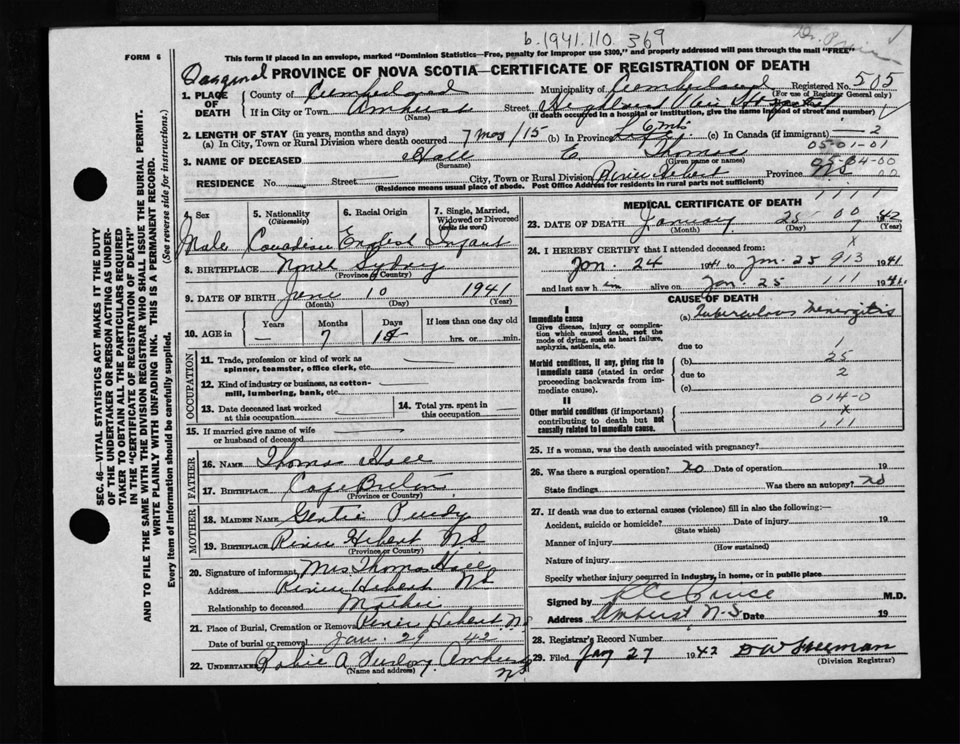 b.1941.110 369
FORM 6
This form if placed in an envelope, marked "Dominion Statistics—Free, penalty for improper use $300," and properly addressed will pass through the mail "FREE"
PROVINCE OF NOVA SCOTIA—CERTIFICATE OF REGISTRATION OF DEATH
1. PLACE OF DEATH
County of Cumberland Municipality of Cumberland Registered No. 505
(For use of Registrar General only)
If in City or Town Amherst Street Highland View Hospital
(Name) (If death occurred in a hospital or institution, give the name instead of street and number)
2. LENGTH OF STAY (in years, months and days)
(a) In City, Town or Rural Division where death occurred 7 mos/15 (b) In Province Life (c) In Canada (if immigrant) — 2
05-01-01
3. NAME OF DECEASED Hall E Thomas
(Surname) (Given name or names)
05-04-00
RESIDENCE No. Street City, Town or Rural Division River Hebert Province NS
(Residence means usual place of abode. Post Office Address for residents in rural parts not sufficient)
4. Sex 5. Nationality (Citizenship) 6. Racial Origin 7. Single, Married, Widowed or Divorced (write the word)
Male Canadian English Infant
8. BIRTHPLACE North Sydney
(Province or Country)
9. DATE OF BIRTH June 10 1941
(Month) (Day) (Year)
10. AGE in Years Months Days If less than one day old
— 7 15 hrs. or min.
OCCUPATION
11. Trade, profession or kind of work as spinner, teamster, office clerk, etc.
12. Kind of industry or business, as cotton-mill, lumbering, bank, etc.
13. Date deceased last worked at this occupation
14. Total yrs. spent in this occupation
15. If married give name of wife or husband of deceased
FATHER
16. NAME Thomas Hall
17. BIRTHPLACE Cape Breton
(Province or Country)
MOTHER
18. MAIDEN NAME Gertie Purdy
19. BIRTHPLACE River Hebert NS
(Province or Country)
20. Signature of informant Mrs Thomas Hall
Address River Hebert NS
Relationship to deceased Mother
21. Place of Burial, Cremation or Removal River Hebert NS
Date of burial or removal Jan. 29 42
22. UNDERTAKER A Amherst NS
(Name and address)
MEDICAL CERTIFICATE OF DEATH
23. DATE OF DEATH January 25 1942
(Month) (Day) (Year)
24. I HEREBY CERTIFY that I attended deceased from:
Jan. 24 1941 to Jan. 25 913 1941
and last saw him alive on Jan. 25 1941.
CAUSE OF DEATH
I
Immediate cause (a) Tuberculous Meningitis
Give disease, injury or complication which caused death, not the mode of dying, such as heart failure, asphyxia, asthenia, etc.
due to 1
Morbid conditions, if any, giving rise to immediate cause (stated in order proceeding backwards from immediate cause).
(b) 25
due to 2
(c)
014-0
II
Other morbid conditions (if important) contributing to death but not causally related to immediate cause.
x
111
25. If a woman, was the death associated with pregnancy?
26. Was there a surgical operation? No Date of operation 19
State findings Was there an autopsy? No
27. If death was due to external causes (violence) fill in also the following:—
Accident, suicide or homicide? Date of injury 19
(State which)
Manner of injury
(How sustained)
Nature of injury
Specify whether injury occurred in industry, in home, or in public place
Signed by Price M.D.
Address Amherst N.S. Date 19
28. Registrar's Record Number
29. Filed Jan 27 1942 D W Freeman
(Division Registrar)
SEC. 46—VITAL STATISTICS ACT MAKES IT THE DUTY OF THE UNDERTAKER OR PERSON ACTING AS UNDERTAKER TO OBTAIN ALL THE PARTICULARS REQUIRED IN THE "CERTIFICATE OF REGISTRATION OF DEATH" AND TO FILE THE SAME WITH THE DIVISION REGISTRAR WHO SHALL ISSUE THE BURIAL PERMIT.
WRITE PLAINLY WITH UNFADING INK. THIS IS A PERMANENT RECORD.
Every item of information should be carefully supplied. (See reverse side for instructions.)